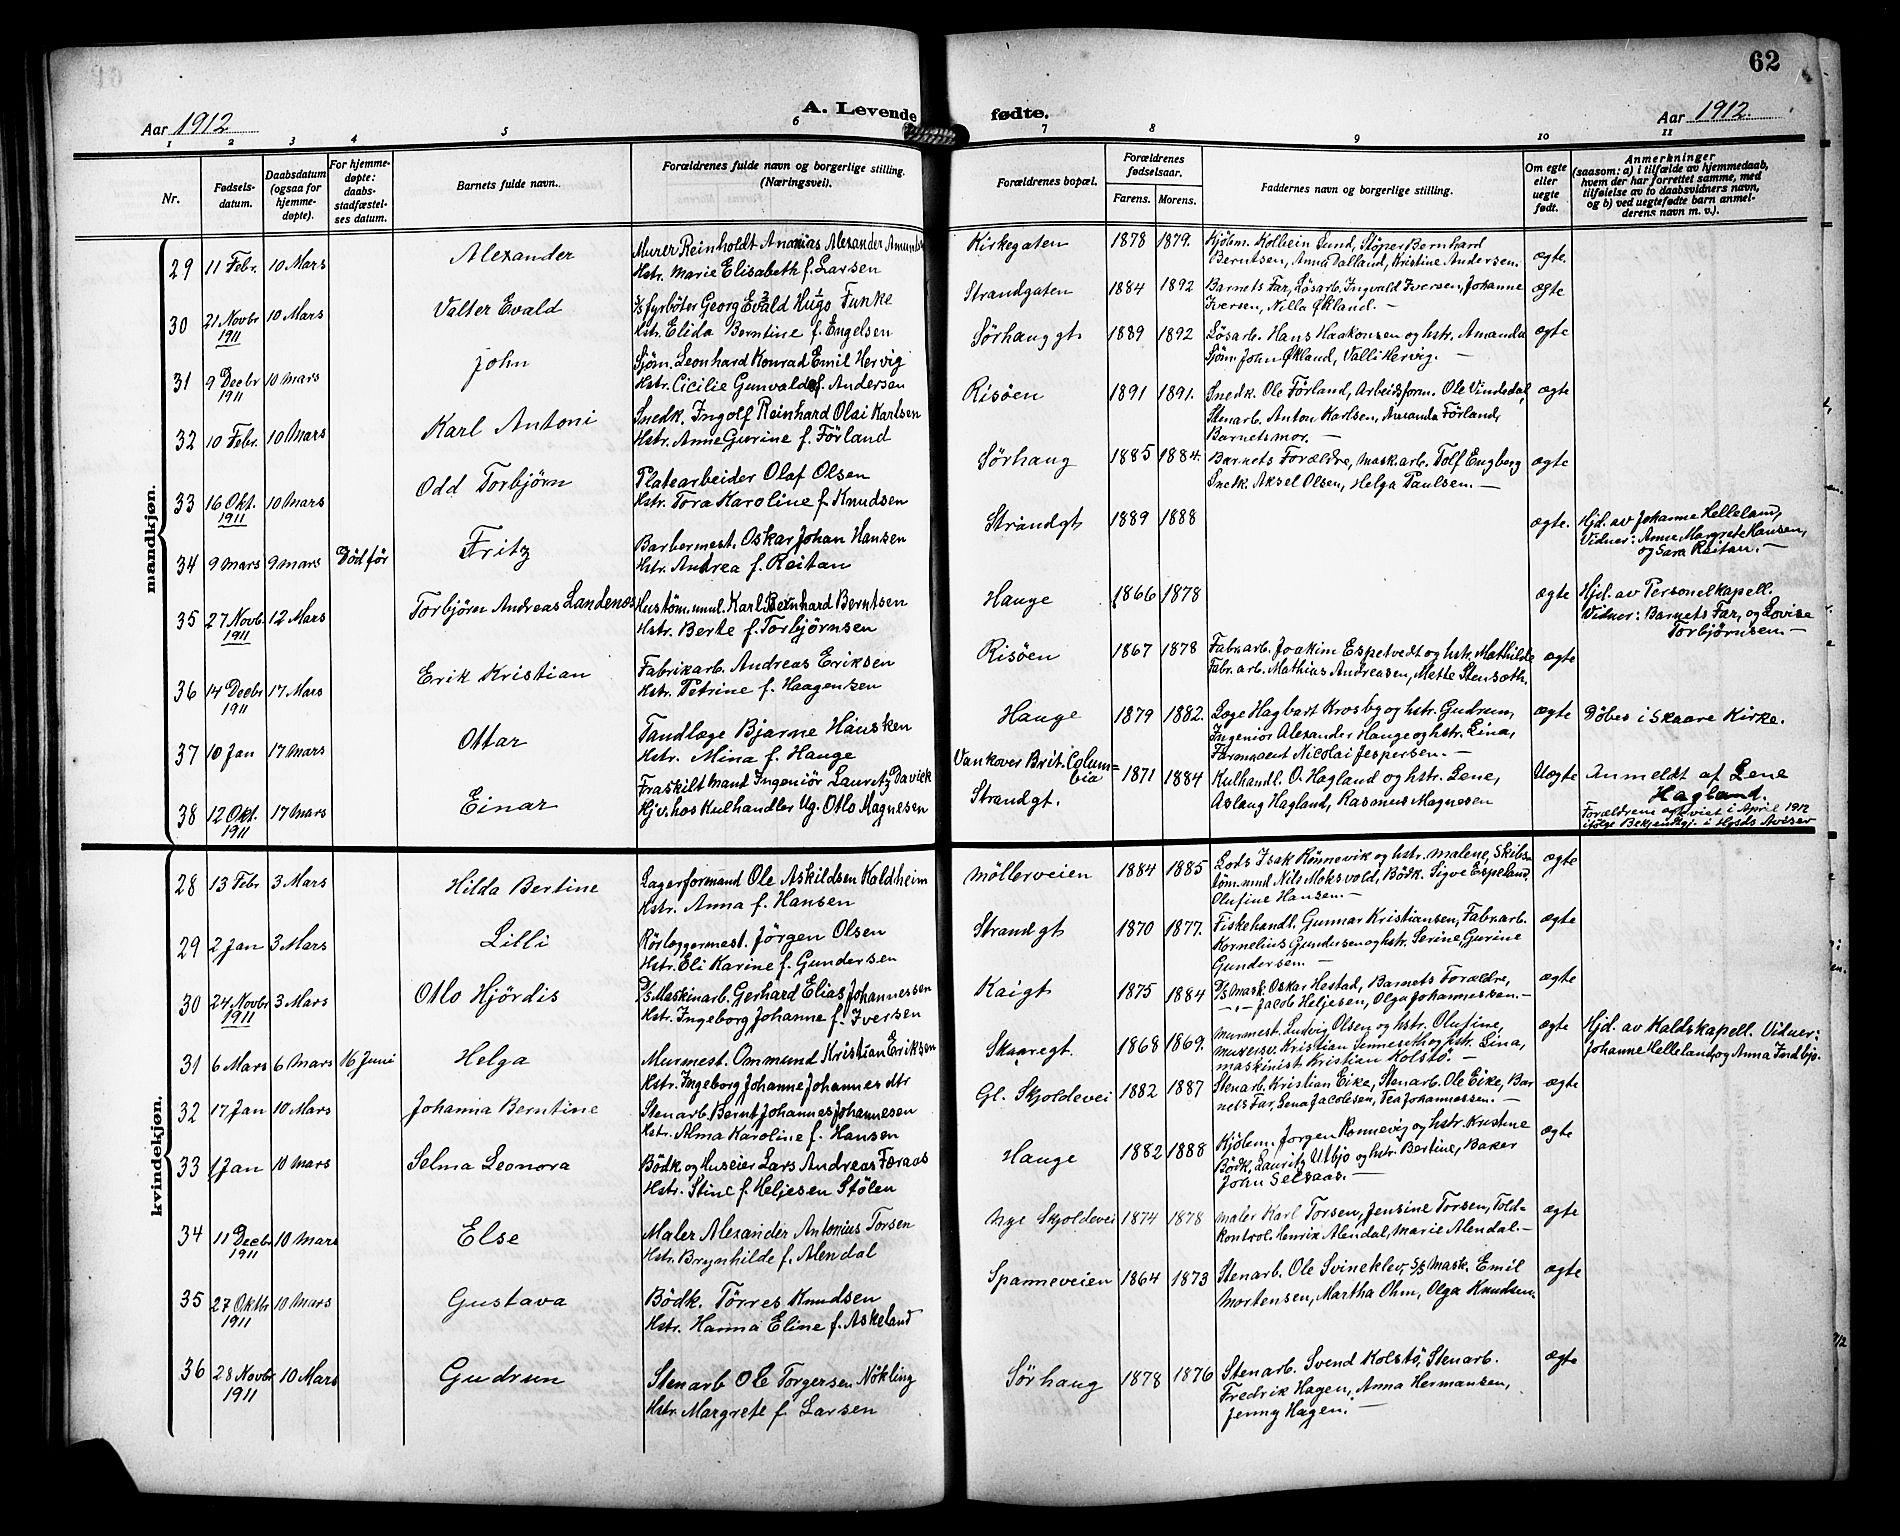 62
A. Levende fødte.
Aar 1912
Aar 1912.
1 2 3 4 5 6 7 8 9 10 11
Nr.
Fødsels-
datum.
Daabsdatum
(ogsaa for
hjemme-
døpte).
For hjemme-
døpte:
daabs-
stadfæstel-
ses datum.
Barnets fulde navn.
Forældrenes fulde navn og borgerlige stilling.
(Næringsvei).
Forældrenes bopæl.
Forældrenes
fødselsaar.
Farens. Morens.
Faddernes navn og borgerlige stilling.
Om egte
eller
uegte
født.
Anmerkninger
(saasom: a) i tilfælde av hjemmedaab,
hvem der har forrettet samme, med
tilføielse av to daabsvidners navn,
og b) ved uegtefødte barn anmel-
derens navn m. v.).
mandkjøn.
29 11 Febr. 10 Mars Alexander
Murer Reinholdt Ananias Alexander Amunds
Hstr. Marie Elisabeth f. Larsen
Kirkegaten 1878 1879.
Kjøbm. Kolbein Lund, Støper Bernhard
Berntsen, Anna Dalland, Kristine Andersen.
ægte.
30 21 Novbr 1911 10 Mars Valter Evald
S/S fyrbøter Georg Evald Hugo Funke
Hstr. Elida Berntine f. Engelsen
Strandgaten 1884 1892
Barnets Far, Løsarb. Ingvald Iversen, Johanne
Iversen, Nilla Økland. —
ægte
31 9 Decbr 1911 10 Mars John
Sjøm. Leonhard Konrad Emil Hervig
Hstr. Cicilie Gunvalda f. Andersen
Sørhauggt 1889 1892
Løsarb. Hans Haakonsen og hstr. Amanda
Sjøm John Økland, Valli Hervig. —
ægte
32 10 Febr. 10 Mars Karl Antoni
Snedk. Ingolf Reinhard Olai Karlsen
Hstr. Anne Gurine f. Førland
Risøen 1891 1891.
Snedk. Ole Førland, Arbeidsform. Ole Vindedal,
Stenarb. Anton Karlsen, Amanda Førland,
Barnets mor. —
ægte
33 16 Okt. 1911 10 Mars Odd Torbjørn
Platearbeider Olaf Olsen
Hstr. Tora Karoline f. Knudsen
Sørhaug 1885 1884.
Barnets Forældre, Mask.arb. Tolf Engberg
Snedk. Aksel Olsen, Helga Paulsen. —
ægte
34 9 Mars 9 Mars Död för Fritz
Barbermest. Oskar Johan Hansen
Hstr. Andrea f. Reitan
Strandgt 1889 1888
ægte.
Hjd. av Johanne Helleland,
Vidner: Anne Margrete Hansen,
og Sara Reitan. —
35 27 Novb. 1911 12 Mars Torbjørn Andreas Landenes
Hustøm.mml. Karl Bernhard Berntsen
Hstr. Berte f. Torbjørnsen
Hauge 1866 1878
ægte
Hjd. av Personelkapell.
Vidner: Barnets Far, og Lovise
Torbjørnsen. —
36 14 Decbr 1911 17 Mars Erik Kristian
Fabrikarb. Andreas Eriksen
Hstr. Petrine f. Haagensen
Risøen 1867 1878
Fabr.arb. Joakim Espetvedt og hstr. Mathilde
Fabr.arb. Mathias Andreasen, Mette Stensøth.
ægte
37 10 Jan 17 Mars Ottar
Tandlæge Bjarne Hausken
Hstr. Mina f. Hauge
Hauge 1879 1882.
Læge Hagbart Krosby og hstr. Gudrun,
Ingeniör Alexander Hauge og hstr. Lina,
Farmaceut Nicolai Jespersen. —
ægte
Døbes i Skaare Kirke.
38 12 Okt. 1911 17 Mars Einar
Fraskilt Mand Ingeniör Lauretz Davick
Hjv. hos Kulhandler Ug. Otto Magnesen
Vankover Brit. Colum=
bia
Strandgt.
1871 1884
Kulhandl. O. Hagland og hstr. Lene,
Aslaug Hagland, Rasmus Magnesen
Uægte
Anmeldt af Lene
Hagland.
Forældrene egteviet i April 1912
ifølge Bekjendtgj. i Hgsds Aviser
kvindekjøn.
28 13 Febr 3 Mars Hilda Bertine
Lagerformand Ole Askildsen Koldheim
Hstr. Anna f. Hansen
Möllerveien 1884 1885
Lods Isak Rønnevik og hstr. Malene, Skibs-
töm.mml Nils Moksvold, Bødk. Sigve Espeland,
Olufine Hansen. —
ægte
29 2 Jan 3 Mars Lilli
Rörlæggermest. Jörgen Olsen
Hstr. Eli Karine f. Gundersen
Strandgt 1870 1877.
Fiskehandl. Gunnar Kristiansen, Fabr.arb.
Kornelius Gundersen og hstr. Serine, Gurine
Gundersen. —
ægte
30 24 Novbr 1911 3 Mars Otto Hjördis
D/S Maskinarb. Gerhard Elias Johannessen
Hstr. Ingeborg Johanne f. Iversen
Kaigt 1875 1884
D/S Mask. Oskar Hestad, Barnets Forældre,
— „ — Jacob Heljesen, Olga Johannessen. —
ægte
31 6 Mars 6 Mars 16 Juni Helga
Murmest. Ommund Kristian Eriksen
Hstr. Ingeborg Johanne Johannesdtr
Skaaregt. 1868 1869.
Murmest. Ludvig Olsen og hstr. Olufine,
Murersv. Kristian Tennseth og hstr. Lina,
Maskinist Kristian Kolstø. —
ægte
Hjd. av Kaldskapell. Vidner:
Johanne Helleland, og Anna Indbjo.
32 17 Jan 10 Mars Johanna Berntine
Stenarb. Bernt Johannes Johannesen
Hstr. Alma Karoline f. Hansen
Gl. Skjoldevei 1882 1887
Stenarb. Kristian Eike, Stenarb. Ole Eike, Bar
nets Far, Lena Jacobsen, Tea Johannessen. —
ægte
33 1 Jan 10 Mars Selma Leonora
Bødk. og Huseier Lars Andreas Færaas
Hstr. Stine f. Heljesen Stølen
Hauge 1882 1888
Kjöbm. Jørgen Rønnevig og hstr. Kristine
Bödk. Lauritz Utbjo og hstr. Bertine, Baker
John Selsaas. —
ægte
34 11 Decbr 1911 10 Mars Else
Maler Alexander Antonius Torsen
Hstr. Brynhilde f. Alendal
Nye Skjoldevei 1874 1878
Maler Karl Torsen, Jensine Torsen, Told-
kontrol. Henrik Alendal, Marie Alendal. —
ægte
35 27 Oktbr 1911 10 Mars Gustava
Bödk. Törres Knudsen
Hstr. Hanna Eline f. Askeland
Spanneveien 1864 1873
Stenarb. Ole Svineklev, S/S Mask. Emil
Mortensen, Martha Ohm, Olga Knudsen.
ægte
36 28 Novbr 1911 10 Mars Gudrun
Stenarb Ole Torgersen Nökling
Hstr. Margrete f. Larsen
Sørhaug 1878 1876
Stenarb. Svend Kolstø, Stenarb.
Fredrik Hagen, Anna Hermansen,
Jenny Hagen. —
ægte